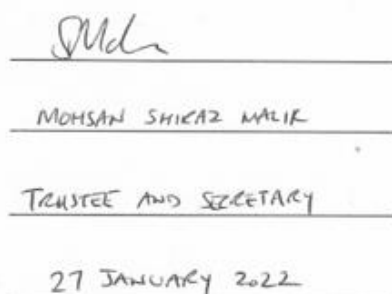 MOHSAN SHIRAZ MALIK
TRUSTEE AND SECRETARY
27 JANUARY 2022